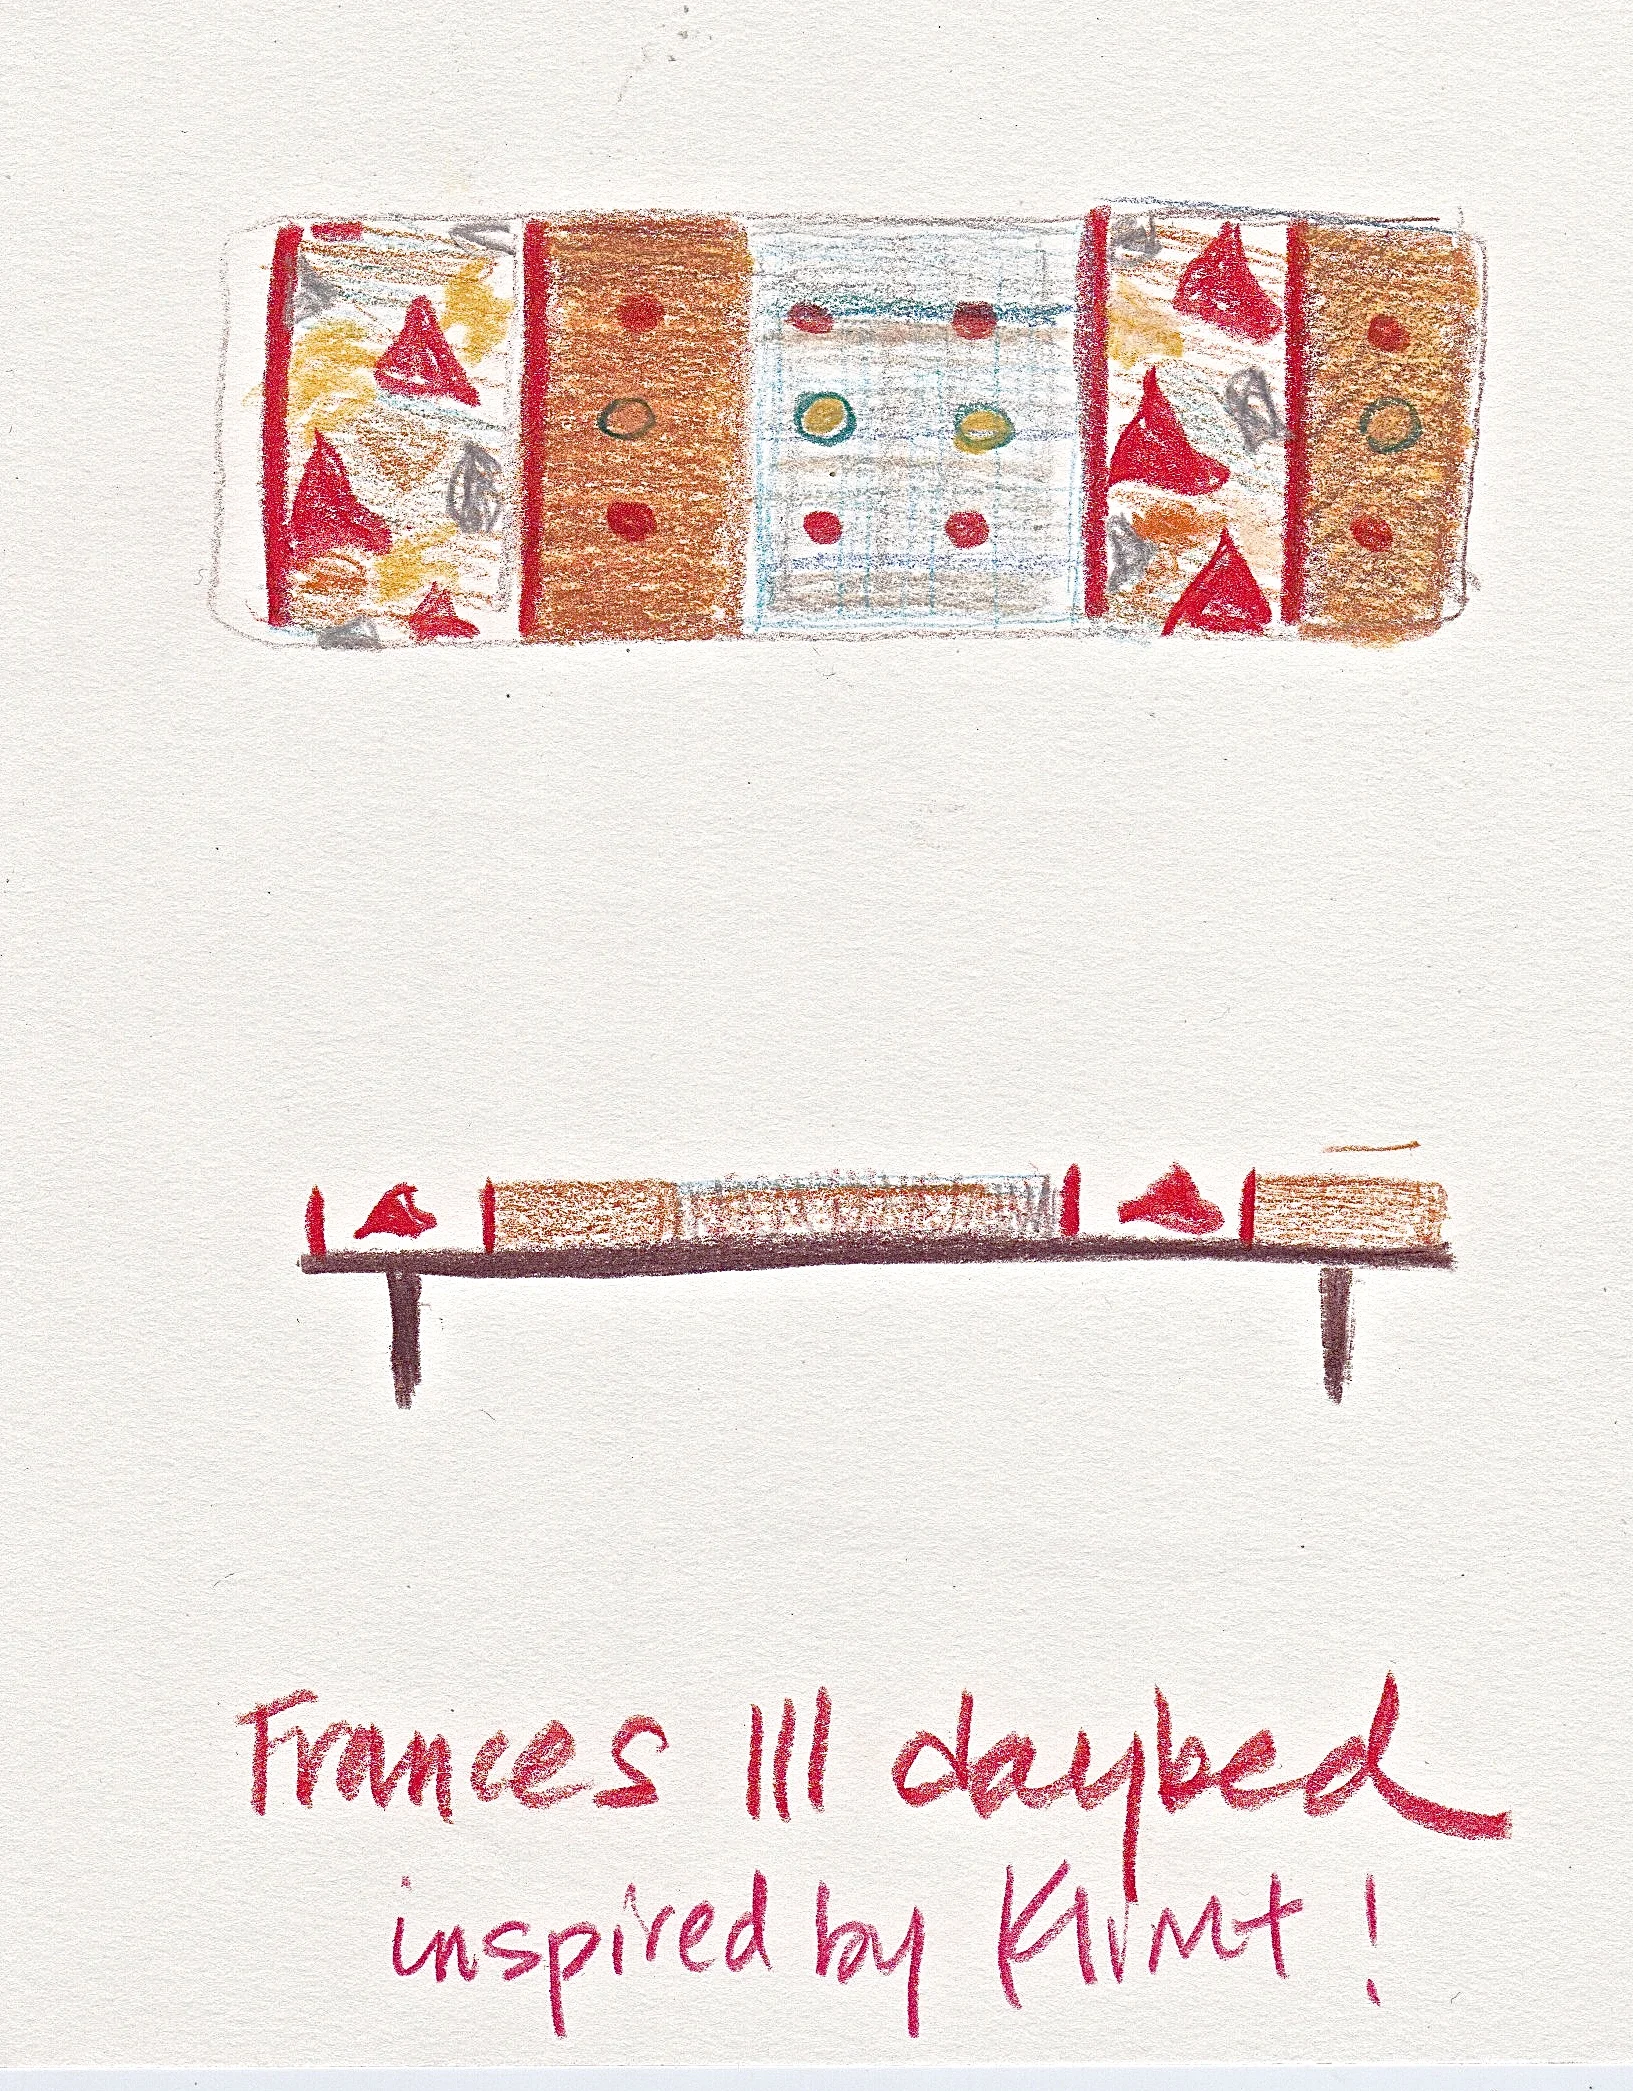 Frances III daybed
inspired by Klimt!